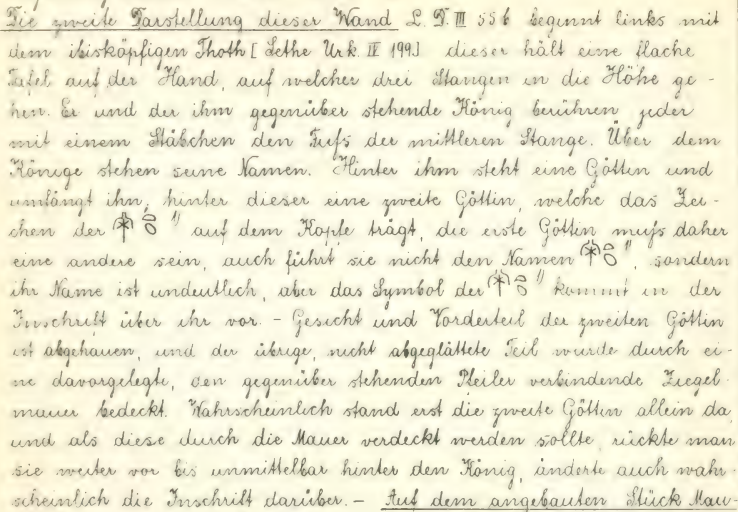 Die zweite Darstellung dieser Wand L. D. III 55 b beginnt links mit
dem ibisköpfigen Thoth [Sethe Urk. IV 199.] dieser hält eine flache
Tafel auf der Hand, auf welcher drei Stangen in die Höhe ge-
hen. Er und der ihm gegenüber stehende König berühren jeder
mit einem Stäbchen den Fufs der mittleren Stange. Über dem
Könige stehen seine Namen. Hinter ihm steht eine Göttin und
umfängt ihn, hinter dieser eine zweite Göttin, welche das Zei-
chen der 1) auf dem Kopfe trägt, die erste Göttin mufs daher
eine andere sein, auch führt sie nicht den Namen 1), sondern
ihr Name ist undeutlich, aber das Symbol der 1) kommt in der
Inschrift über ihr vor. - Gesicht und Vorderteil der zweiten Göttin
ist abgehauen, und der übrige, nicht abgeglättete Teil wurde durch ei-
ne davorgelegte, den gegenüber stehenden Pfeiler verbindende Ziegel-
mauer bedeckt. Wahrscheinlich stand erst die zweite Göttin allein da,
und als diese durch die Mauer verdeckt werden sollte, rückte man
sie weiter vor bis unmittelbar hinter den König, änderte auch wahr-
scheinlich die Inschrift darüber. - Auf dem angebauten Stück Mau-